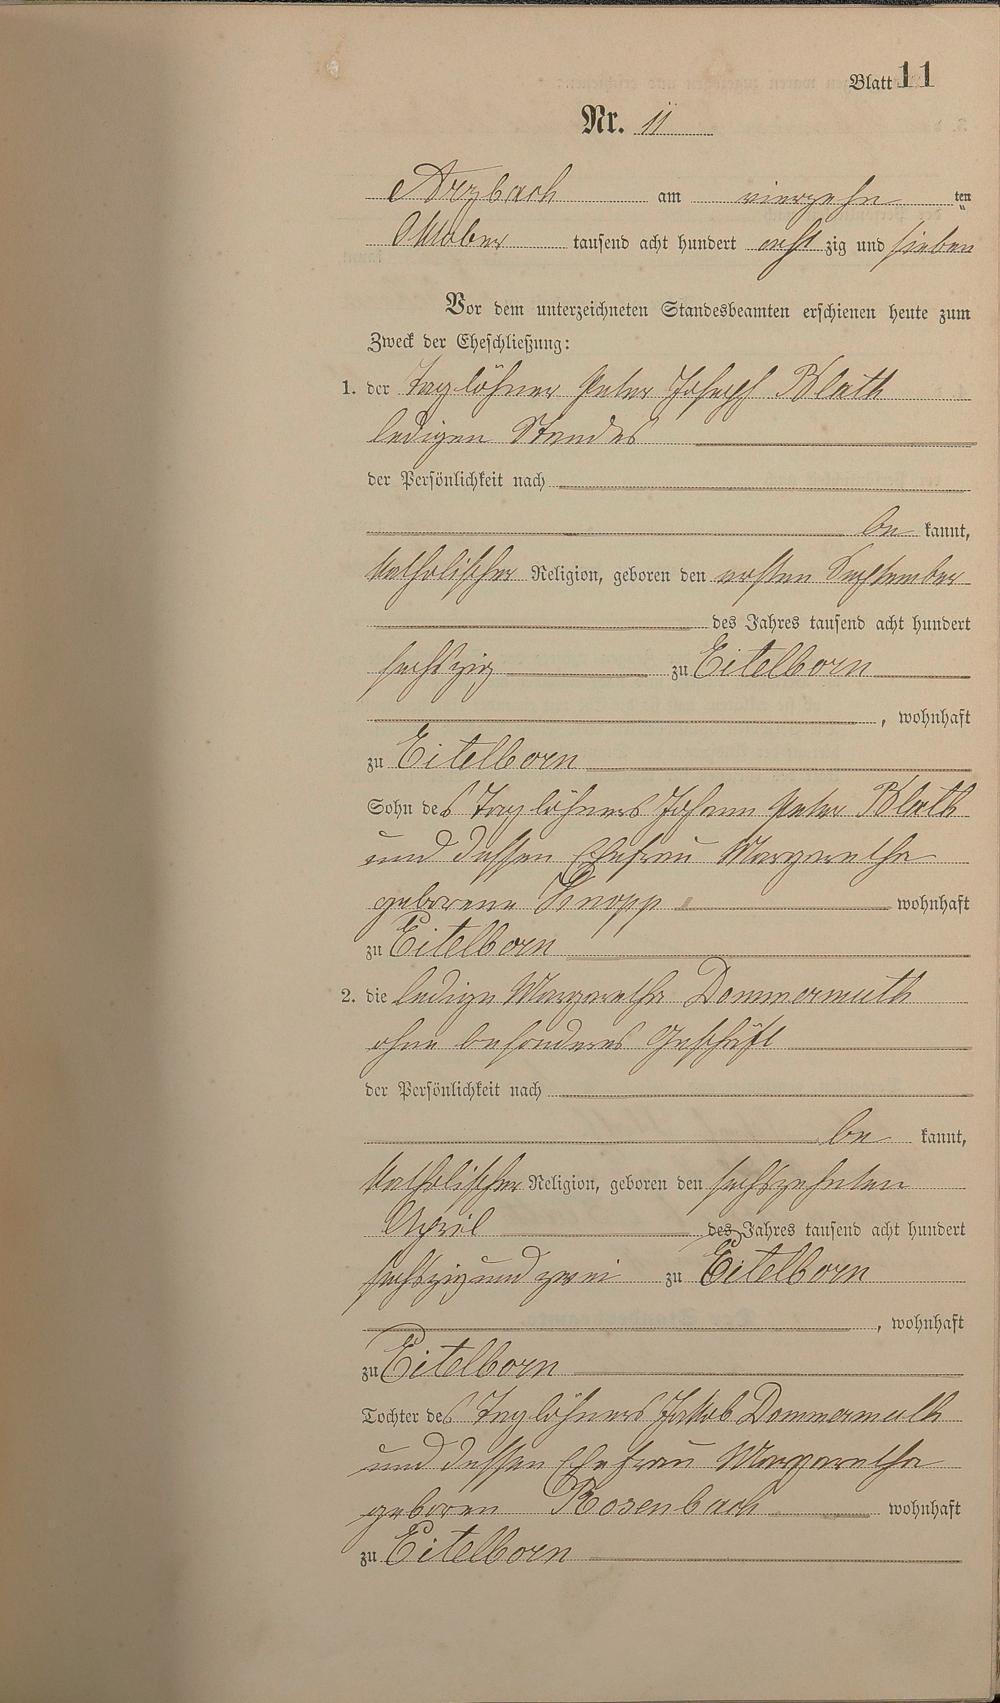 Blatt 11
Nr. 11
Arzbach am vierzehn ten
Oktober tausend acht hundert acht zig und sieben
Vor dem unterzeichneten Standesbeamten erschienen heute zum
Zweck der Eheschließung:
1. der Taglöhner Peter Joseph Blath
ledigen Standes
der Persönlichkeit nach
be kannt,
katholischer Religion, geboren den ersten September
des Jahres tausend acht hundert
sechszig zu Eitelborn
, wohnhaft
zu Eitelborn
Sohn des Taglöhners Johann Peter Blath
und dessen Ehefrau Margarethe
geborene Knopp wohnhaft
zu Eitelborn
2. die ledige Margaretha Dommermuth
ohne besonderes Geschäft
der Persönlichkeit nach
be kannt,
katholischer Religion, geboren den sechszehnten
April des Jahres tausend acht hundert
sechszig und zwei zu Eitelborn
, wohnhaft
zu Eitelborn
Tochter des Taglöhners Jakob Dommermuth
und dessen Ehefrau Margaretha
geboren Rosenbach wohnhaft
zu Eitelborn